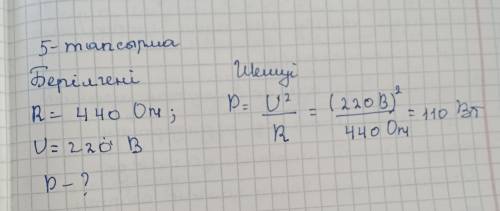 5-тапсырма
Берілгені
R = 440 Ом;
U = 220 В
P - ?
Шешуі
P = U²/R = (220В)²/440 Ом = 110 Вт